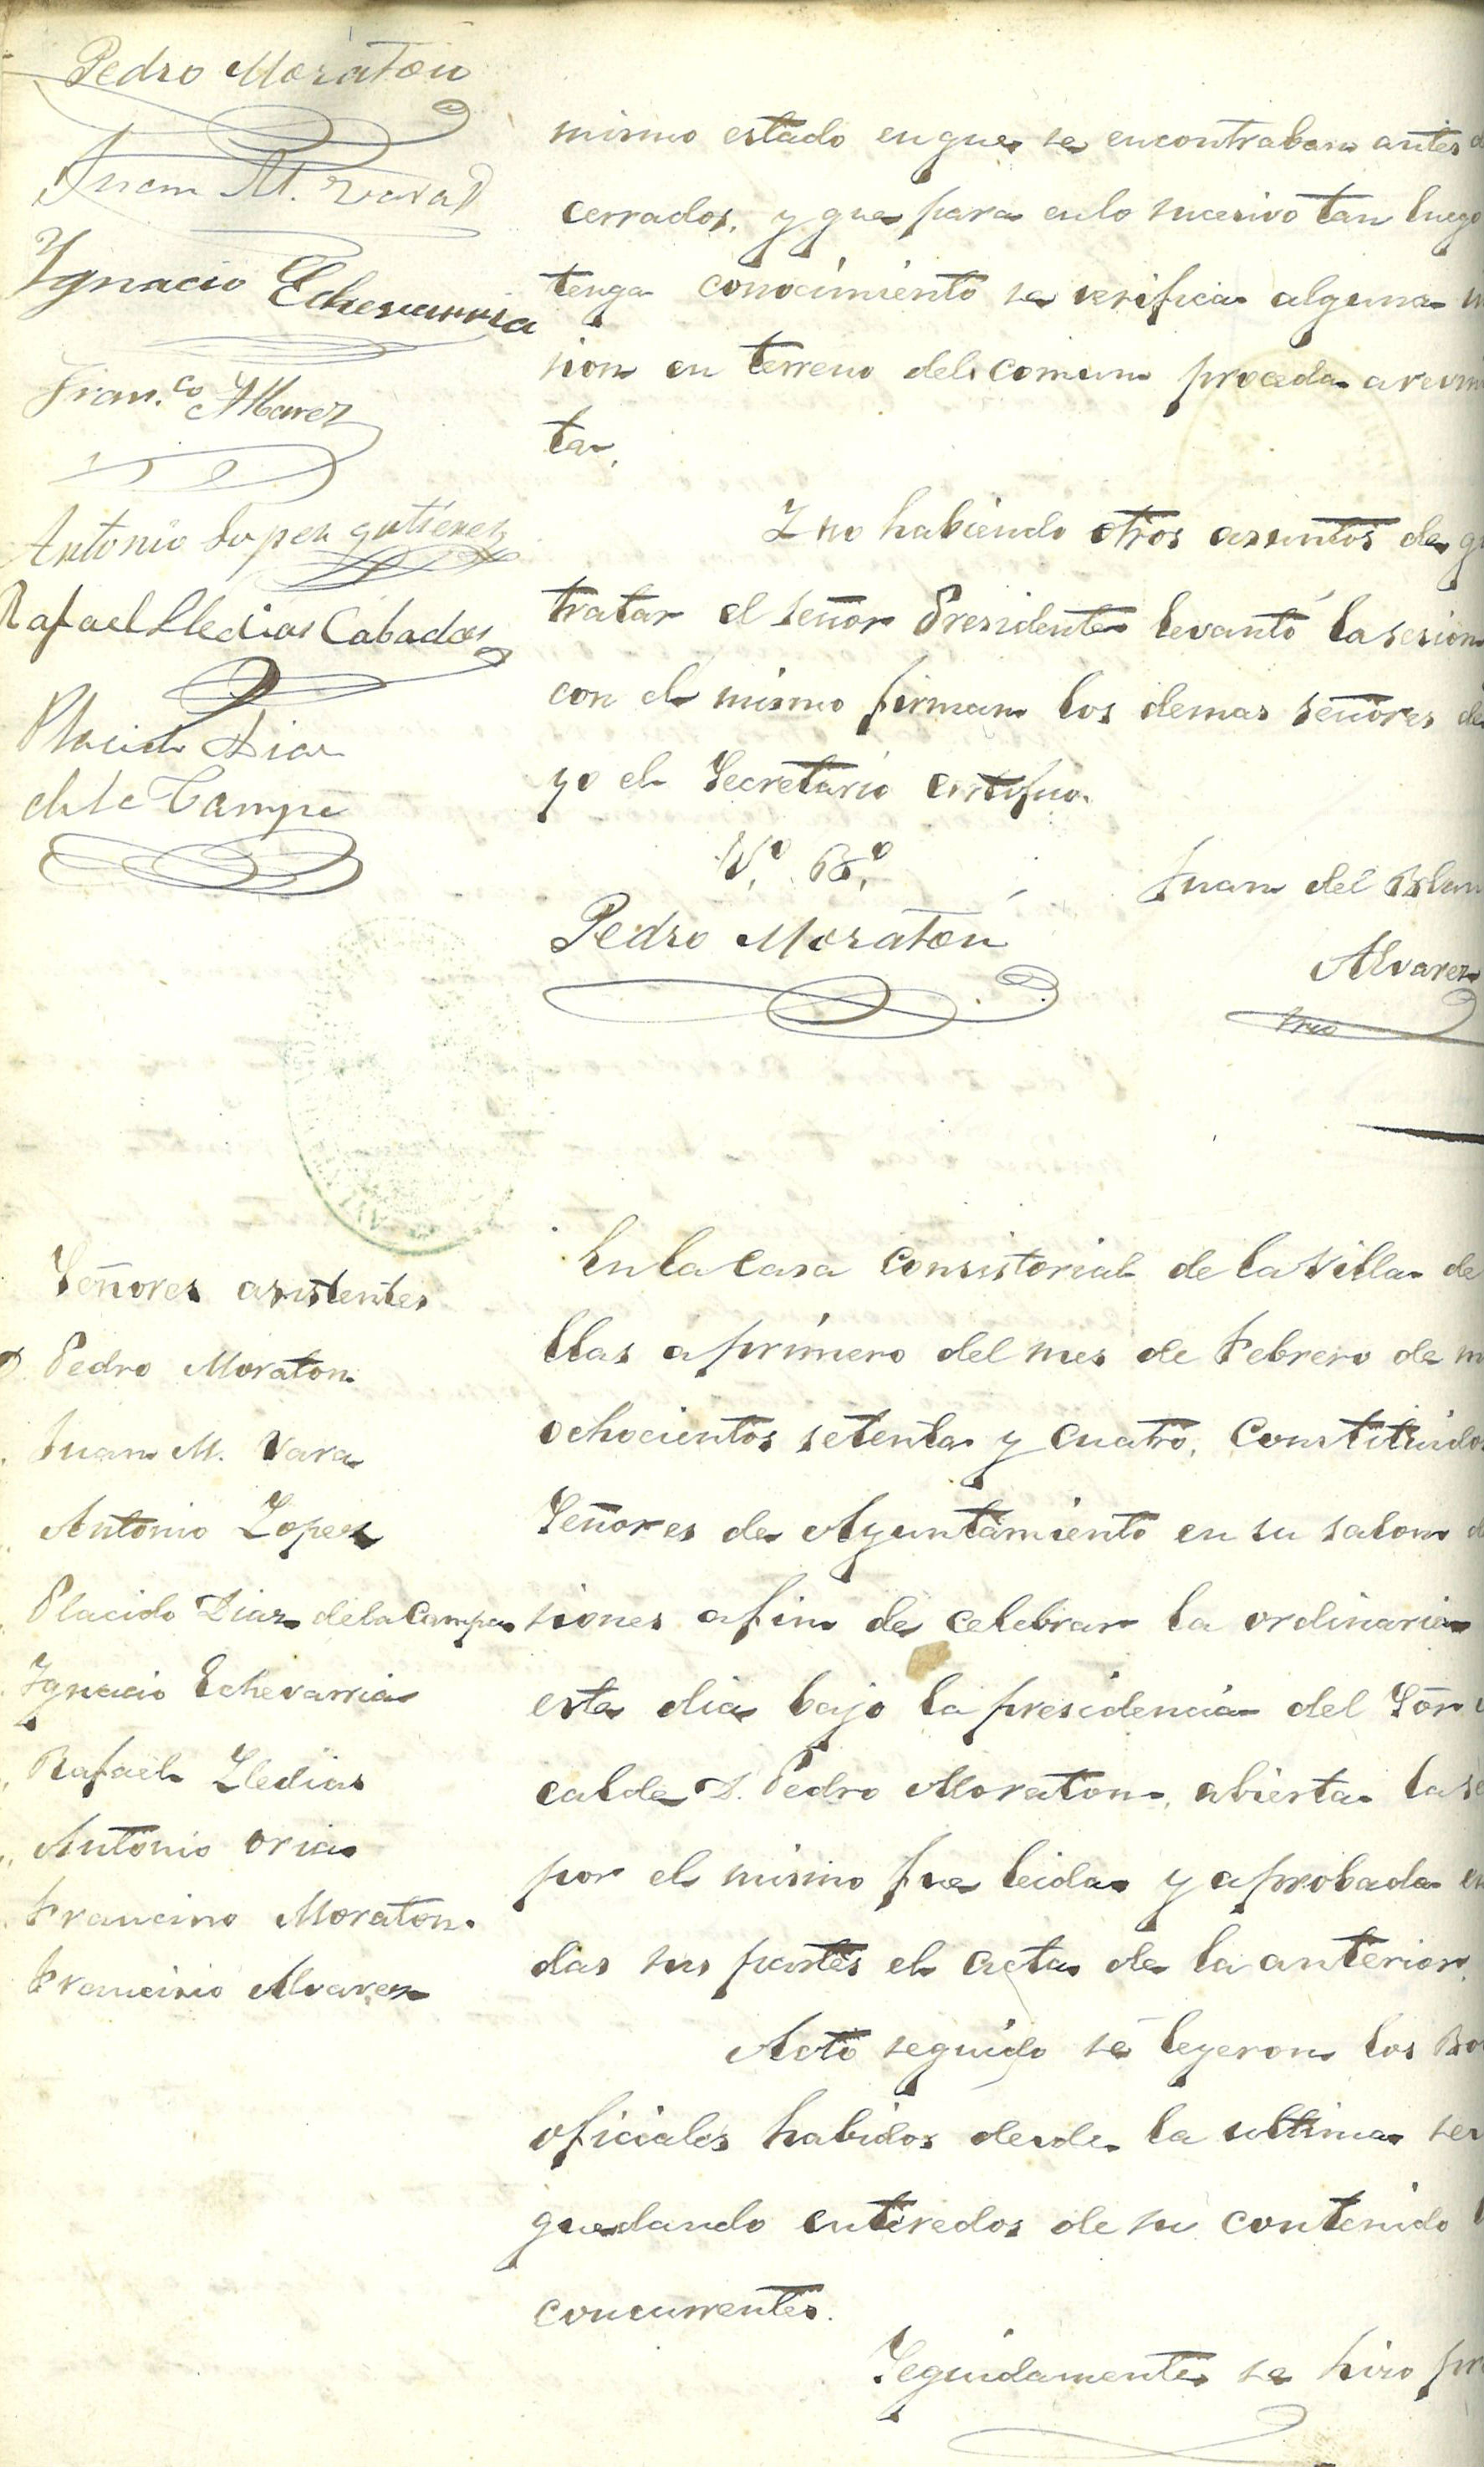 Pedro Moraton
Juan M. Vara
Ygnacio Echevarria
Fran.co Alvarez
Antonio Lopez gutierrez
Rafael Lledias Cabadas
Placido Diaz
de la Campa
mismo estado en que se encontraban antes
cerrados, y que para en lo sucesivo tan luego
tenga conocimiento se verifica alguna
sion en terreno del comun proceda a
tar.
Y no habiendo otros asuntos de
tratar el señor Presidente levantó la sesion
con el mismo firman los demas señores de
yo el Secretario certifico.
V.º B.º
Pedro Moraton
Juan del
Alvarez
Srio
Señores asistentes
D. Pedro Moraton
Juan M. Vara
Antonio Lopez
Placido Diaz de la Campa
Ygnacio Echevarria
Rafael Lledias
Antonio Oria
Francisco Moraton
Francisco Alvarez
En la Casa Consistorial de la Villa de
llas a primero del mes de Febrero de
ochocientos setenta y cuatro, Constituidos
Señores de Ayuntamiento en su salon
siones a fin de celebrar la ordinaria
este dia bajo la presidencia del Sõr
calde D. Pedro Moraton, abierta la se
por el mismo fue leida y aprobada en
das sus partes el acta de la anterior.
Acto seguido se leyeron los Bo
oficiales habidos desde la ultima ses
quedando enteredos de su contenido
concurrentes.
Seguidamente se hizo pr